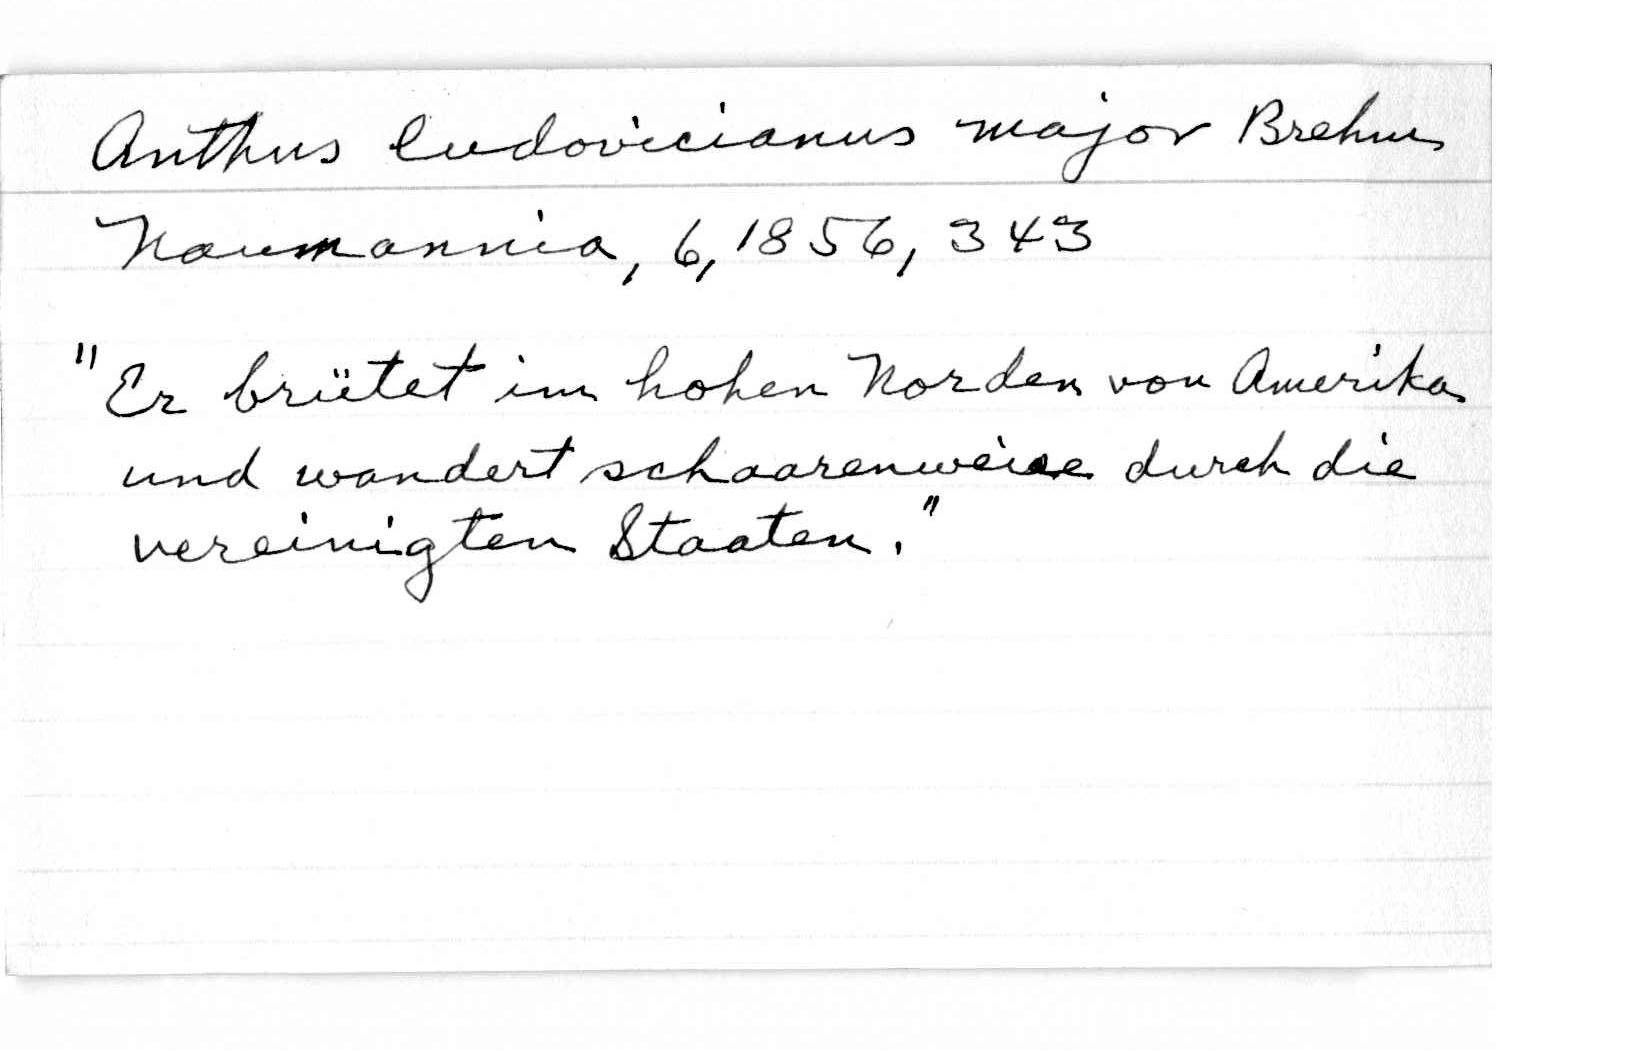 Anthus ludovicianus major Brehm
Naumannia, 6, 1856, 343
"Er brütet im hohen Norden von Amerika
und wandert schaarenweise durch die
vereinigten Staaten."